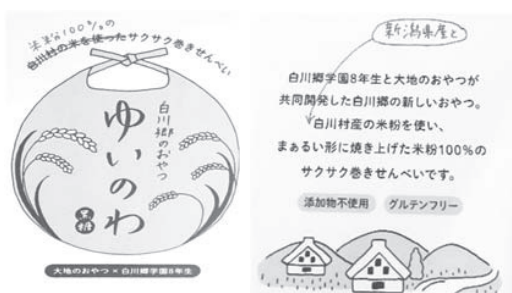 米粉100%の
白川村の米を使ったサクサク巻きせんべい
白川郷のおやつ
ゆいのわ
黒糖
大地のおやつ × 白川郷学園8年生
新潟県産と
白川郷学園8年生と大地のおやつが
共同開発した白川郷の新しいおやつ。
白川村産の米粉を使い、
まぁるい形に焼き上げた米粉100%の
サクサク巻きせんべいです。
添加物不使用 グルテンフリー